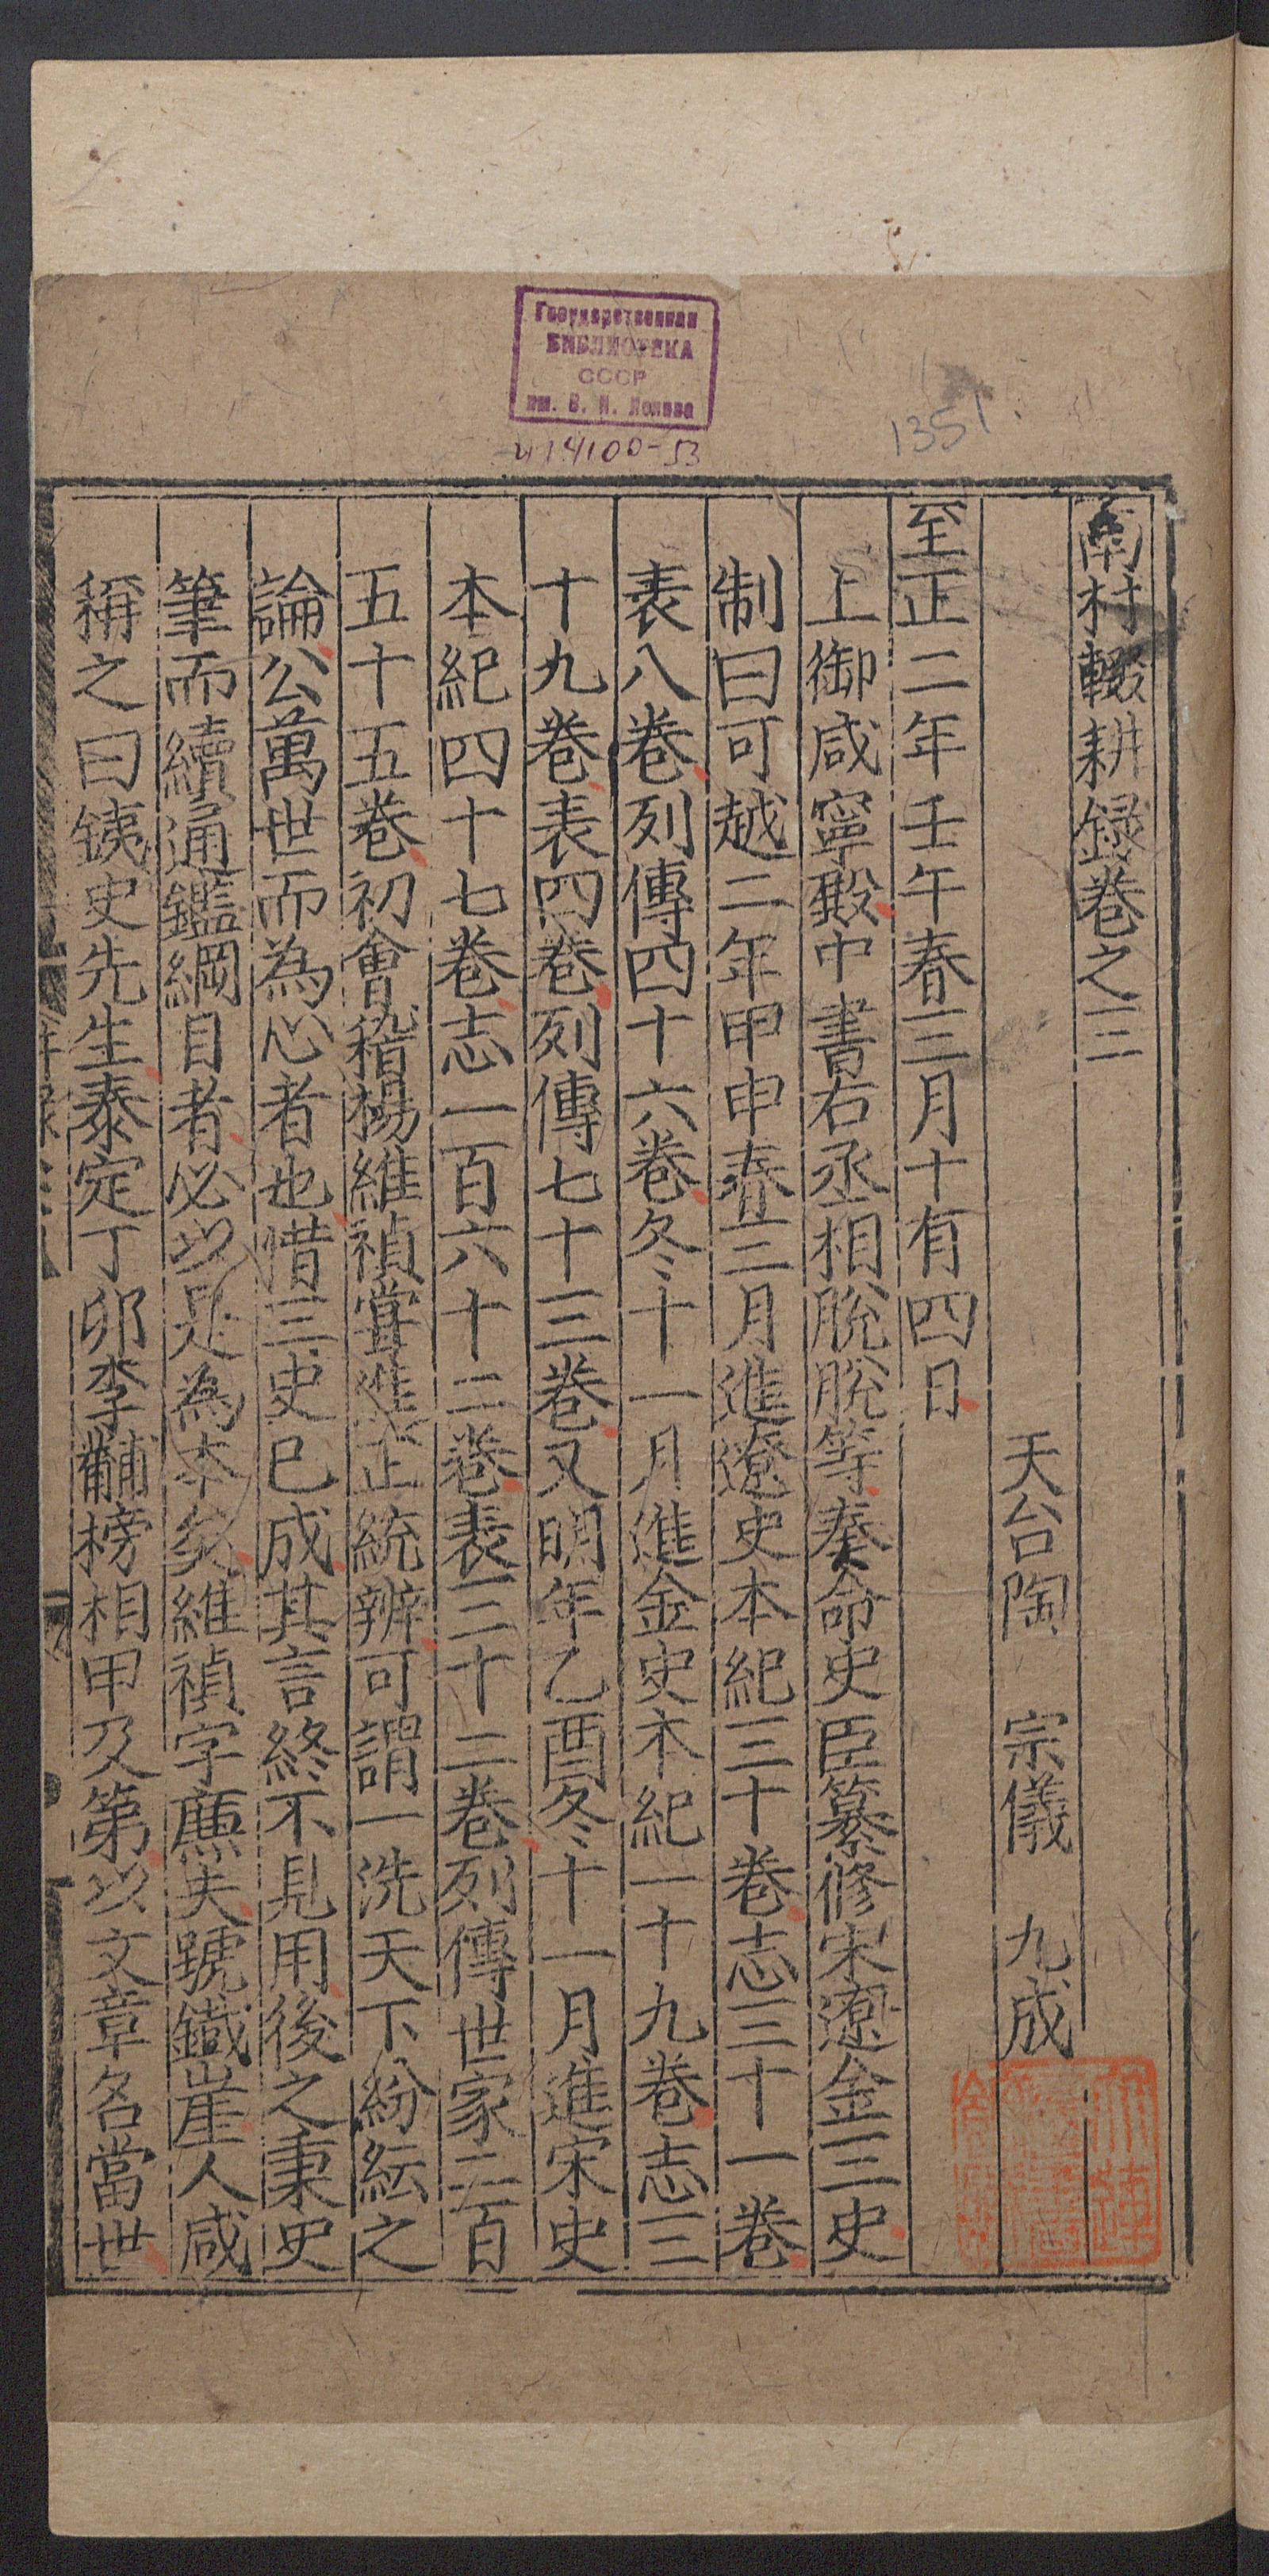 Государственная
БИБЛИОТЕКА
СССР
им. В. И. Ленина
414100-53
1351.
南村輟耕録卷之三
天台陶 宗儀 九成
至正二年壬午春三月十有四日
上御咸寧殿中書右丞相脫脫等奏命史臣纂修宋遼金三史
制曰可越二年甲申春三月進遼史本紀三十卷志三十一卷
表八卷列傳四十六卷冬十一月進金史本紀一十九卷志三
十九卷表四卷列傳七十三卷又明年乙酉冬十一月進宋史
本紀四十七卷志一百六十二卷表三十二卷列傳世家二百
五十五卷初會稽楊維禎嘗進正統辨可謂一洗天下紛紜之
論公萬世而為心者也惜三史已成其言終不見用後之秉史
筆而續通鑑綱目者必以是為本矣維禎字廉夫號鐵崖人咸
稱之曰銕史先生泰定丁卯李黼榜相甲及第以文章名當世